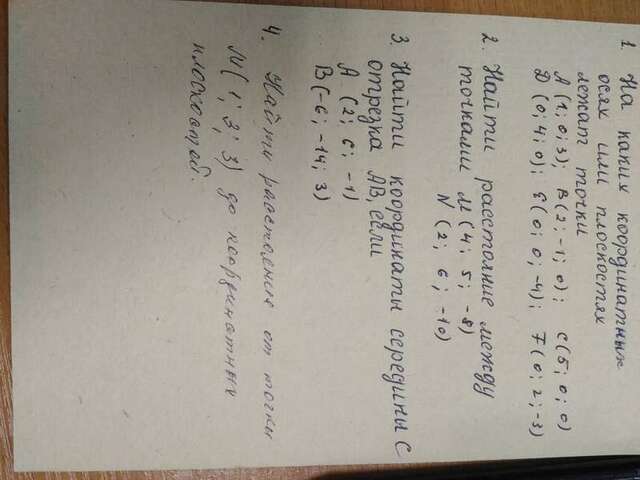 1. На каких координатных
осях или плоскостях
лежат точки
A (1; 0; 3); B (2; -1; 0); C (5; 0; 0)
D (0; 4; 0); E (0; 0; -4); F (0; 2; -3)
2. Найти расстояние между
точками M (4; 5; -8)
N (2; 6; -10)
3. Найти координаты середины C
отрезка AB, если
A (2; 6; -1)
B (-6; -14; 3)
4. Найти расстояние от точки
N (1; 2; 3) до координатных
плоскостей.